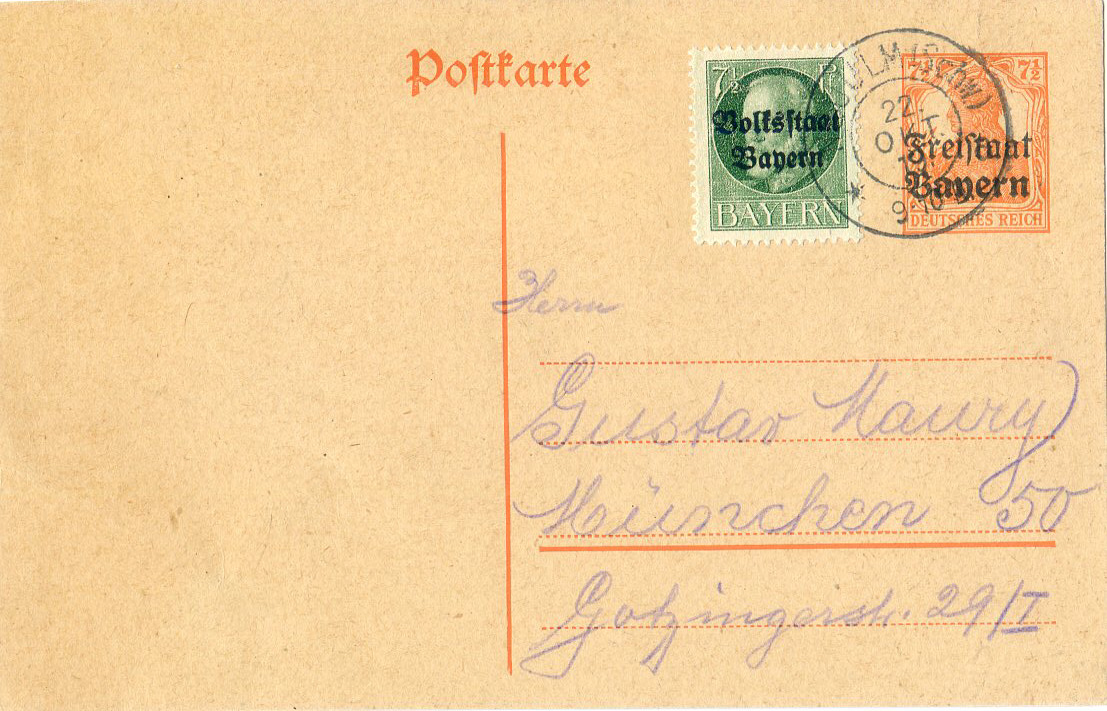 Postkarte
7½ Pf
Volksstaat
Bayern
BAYERN
22.
OKT.
9-10
7½
Freistaat
Bayern
DEUTSCHES REICH
Herrn
Gustav Maury
München 50
Gotzingerstr. 29/I